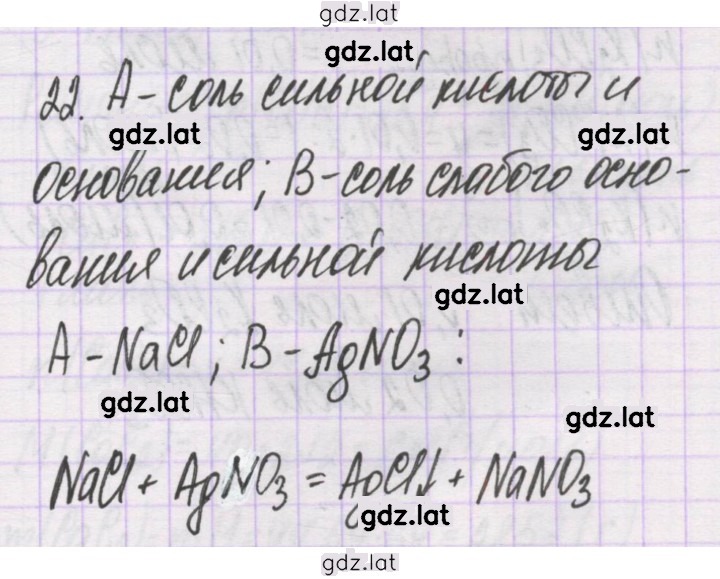 gdz.lat
gdz.lat
22. А - соль сильной кислоты и
gdz.lat gdz.lat
основания; В - соль слабого осно-
вания и сильной кислоты
gdz.lat
А - NaCl; В - AgNO₃:
gdz.lat
gdz.lat
NaCl + AgNO₃ = AgCl↓ + NaNO₃
gdz.lat
gdz.lat